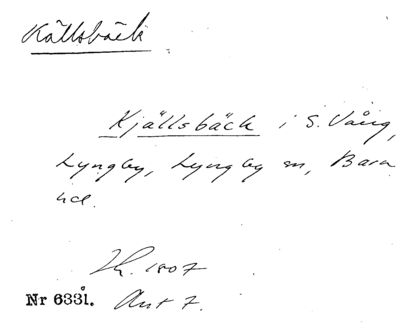 Källsbäck
Kjällsbäck i S. Vång,
Lyngby, Lyngby sn, Bara
hd.
1807
Nr 6331. Akt 7.